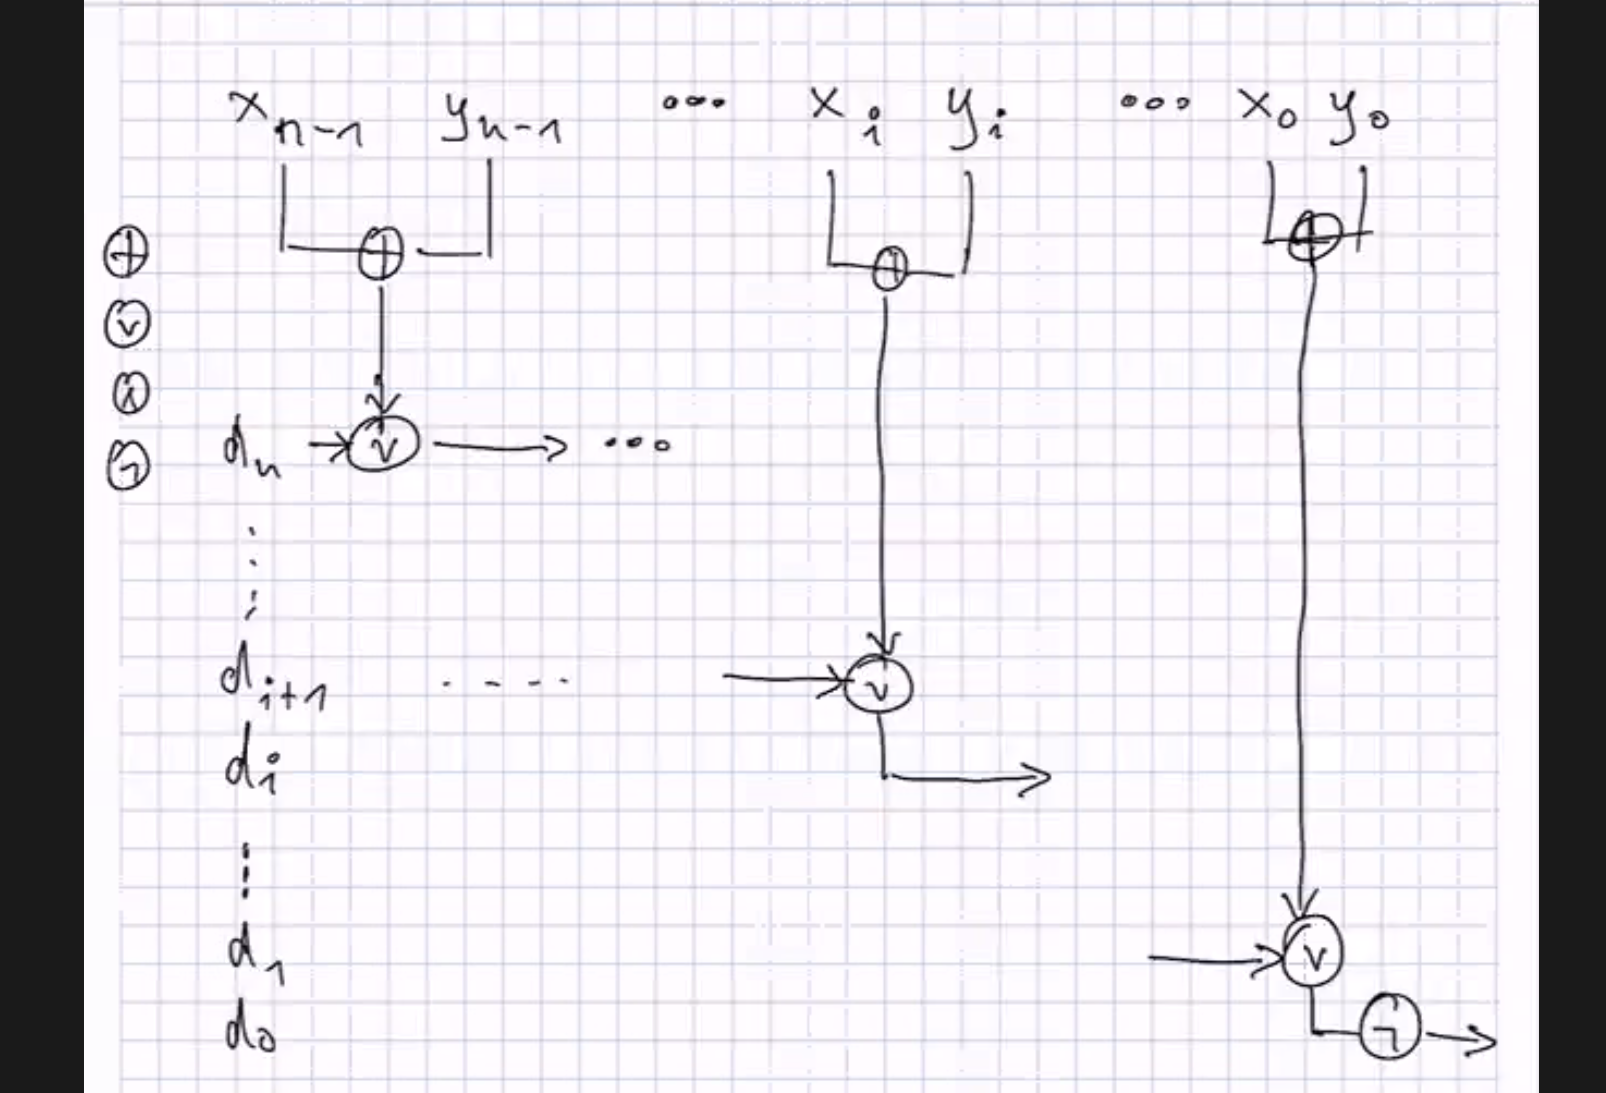 x_{n-1} y_{n-1} ... x_i y_i ... x_0 y_0
⊕ ⊕ ⊕ ⊕
∨
∧
d_n ∨ ...
¬
⋮
d_{i+1} .... ∨
d_i
⋮
d_1 ∨
d_0 ¬